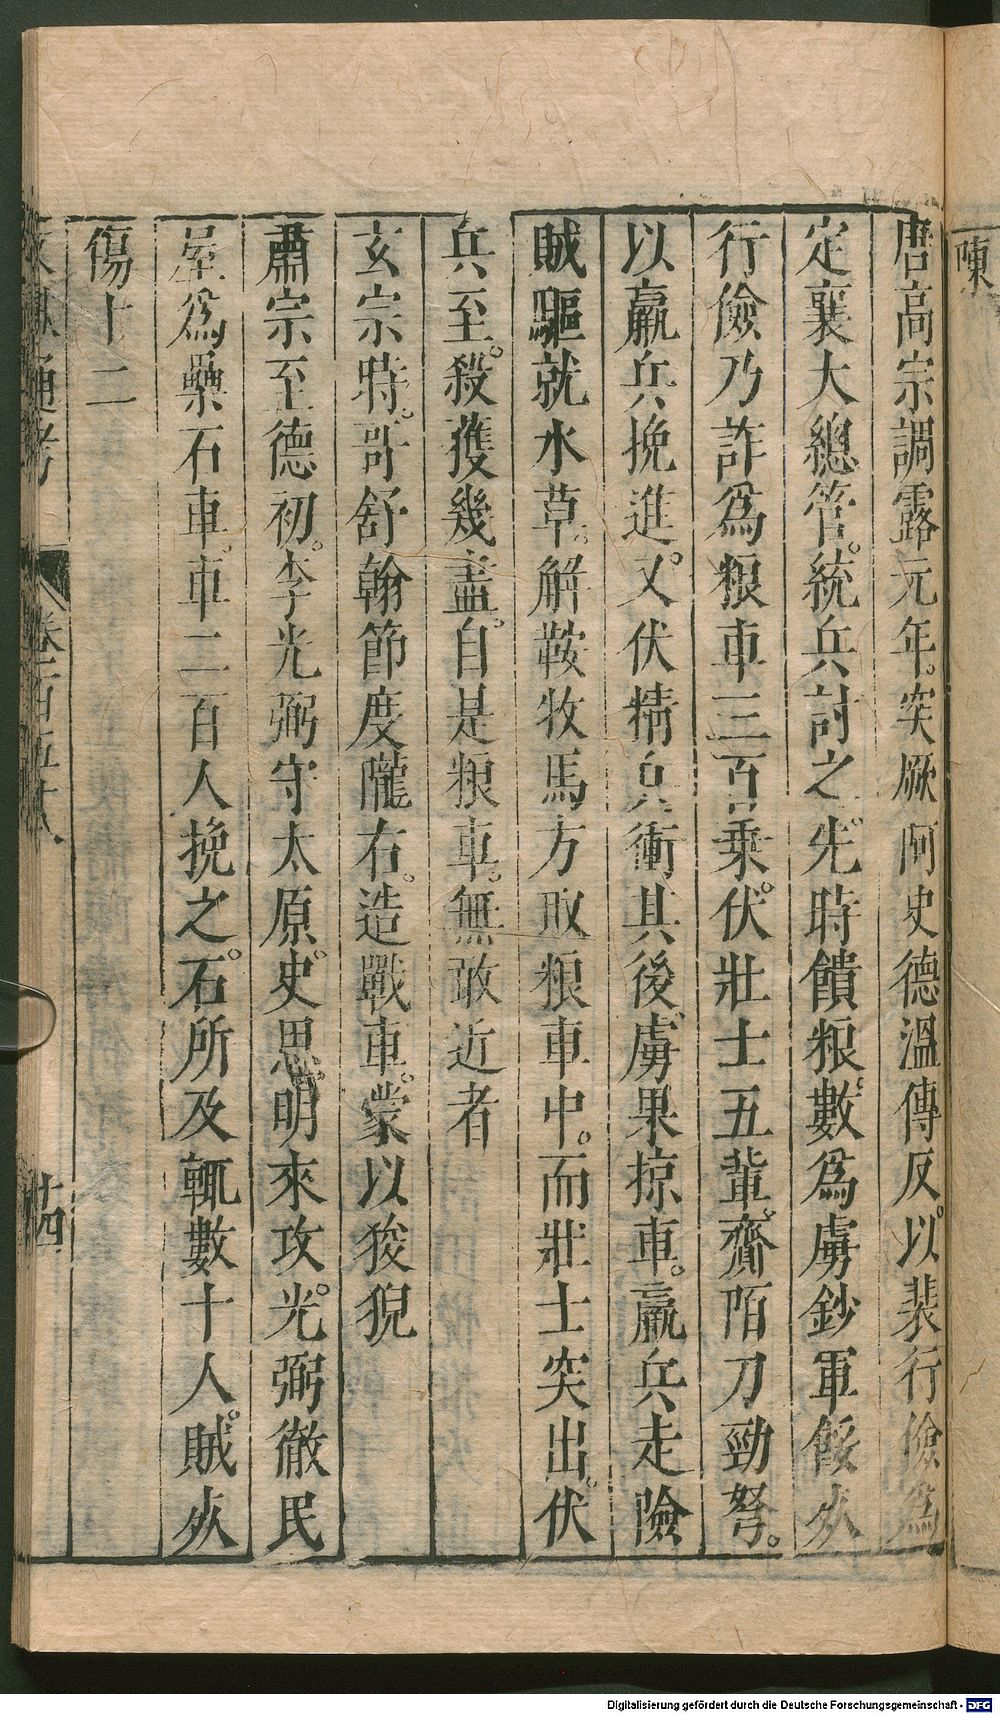 陳
唐高宗調露元年。突厥阿史德溫傅反。以裴行儉爲
定襄大總管。統兵討之。先時饋粮數爲虜鈔軍餒死
行儉乃詐爲粮車三百乘。伏壯士五輩。齎陌刀勁弩。
以羸兵挽進。又伏精兵衝其後。虜果掠車。羸兵走險
賊驅就水草。解鞍牧馬方取粮車中。而壯士突出。伏
兵至。殺獲幾盡。自是粮車。無敢近者
玄宗時。哥舒翰節度隴右。造戰車。蒙以狻猊
肅宗至德初。李光弼守太原。史思明來攻。光弼徹民
屋爲礧石車。車二百人挽之。石所及輒數十人。賊死
傷十二
文獻通考 卷一百五十八 十四
Digitalisierung gefördert durch die Deutsche Forschungsgemeinschaft - DFG